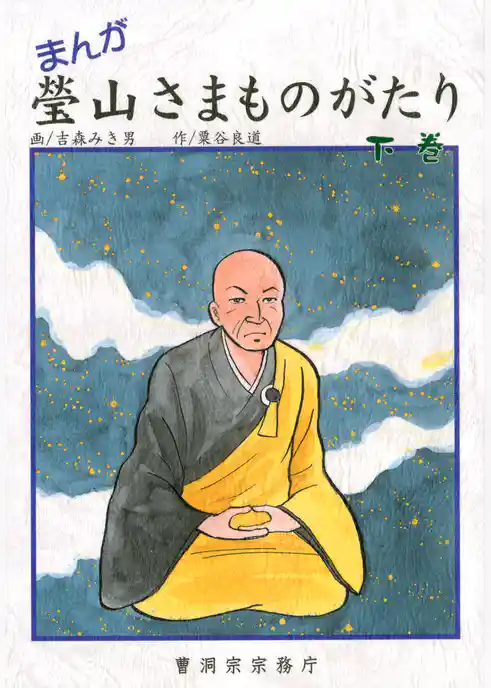 まんが
瑩山さまものがたり
画/吉森みき男 作/粟谷良道
下巻
曹洞宗宗務庁